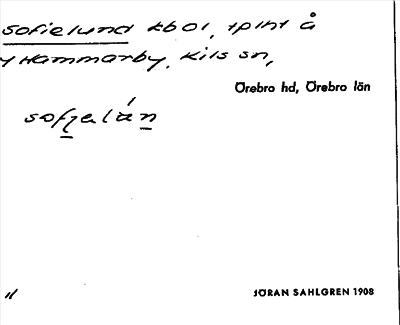 Sofielund kbol, tplht å
Y Hammarby, Kils sn,
Örebro hd, Örebro län
sofi̯elán
JÖRAN SAHLGREN 1908